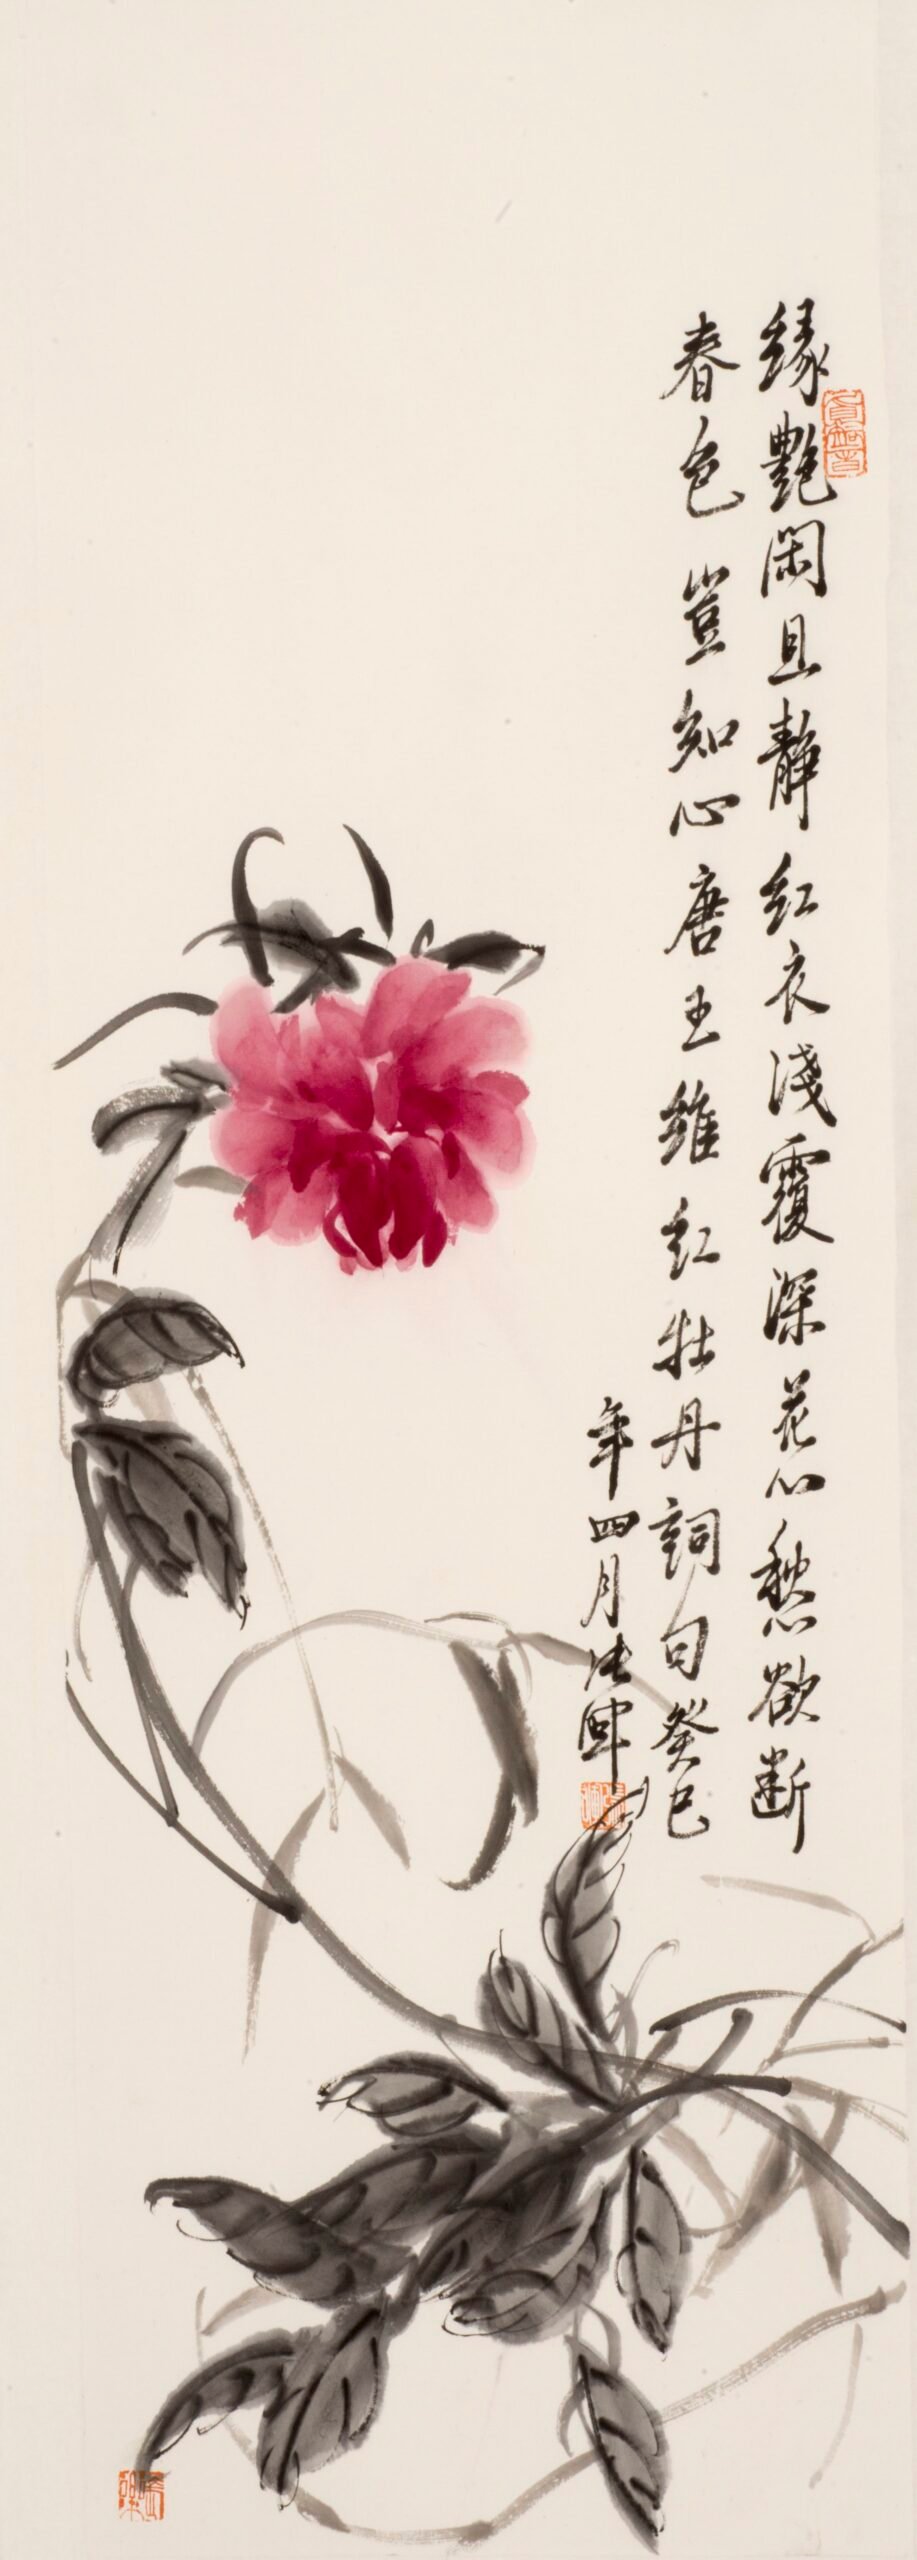 緣艷閑且靜紅衣淺覆深花心愁欲断
春色豈知心唐王維紅牡丹詞句癸巳
年四月